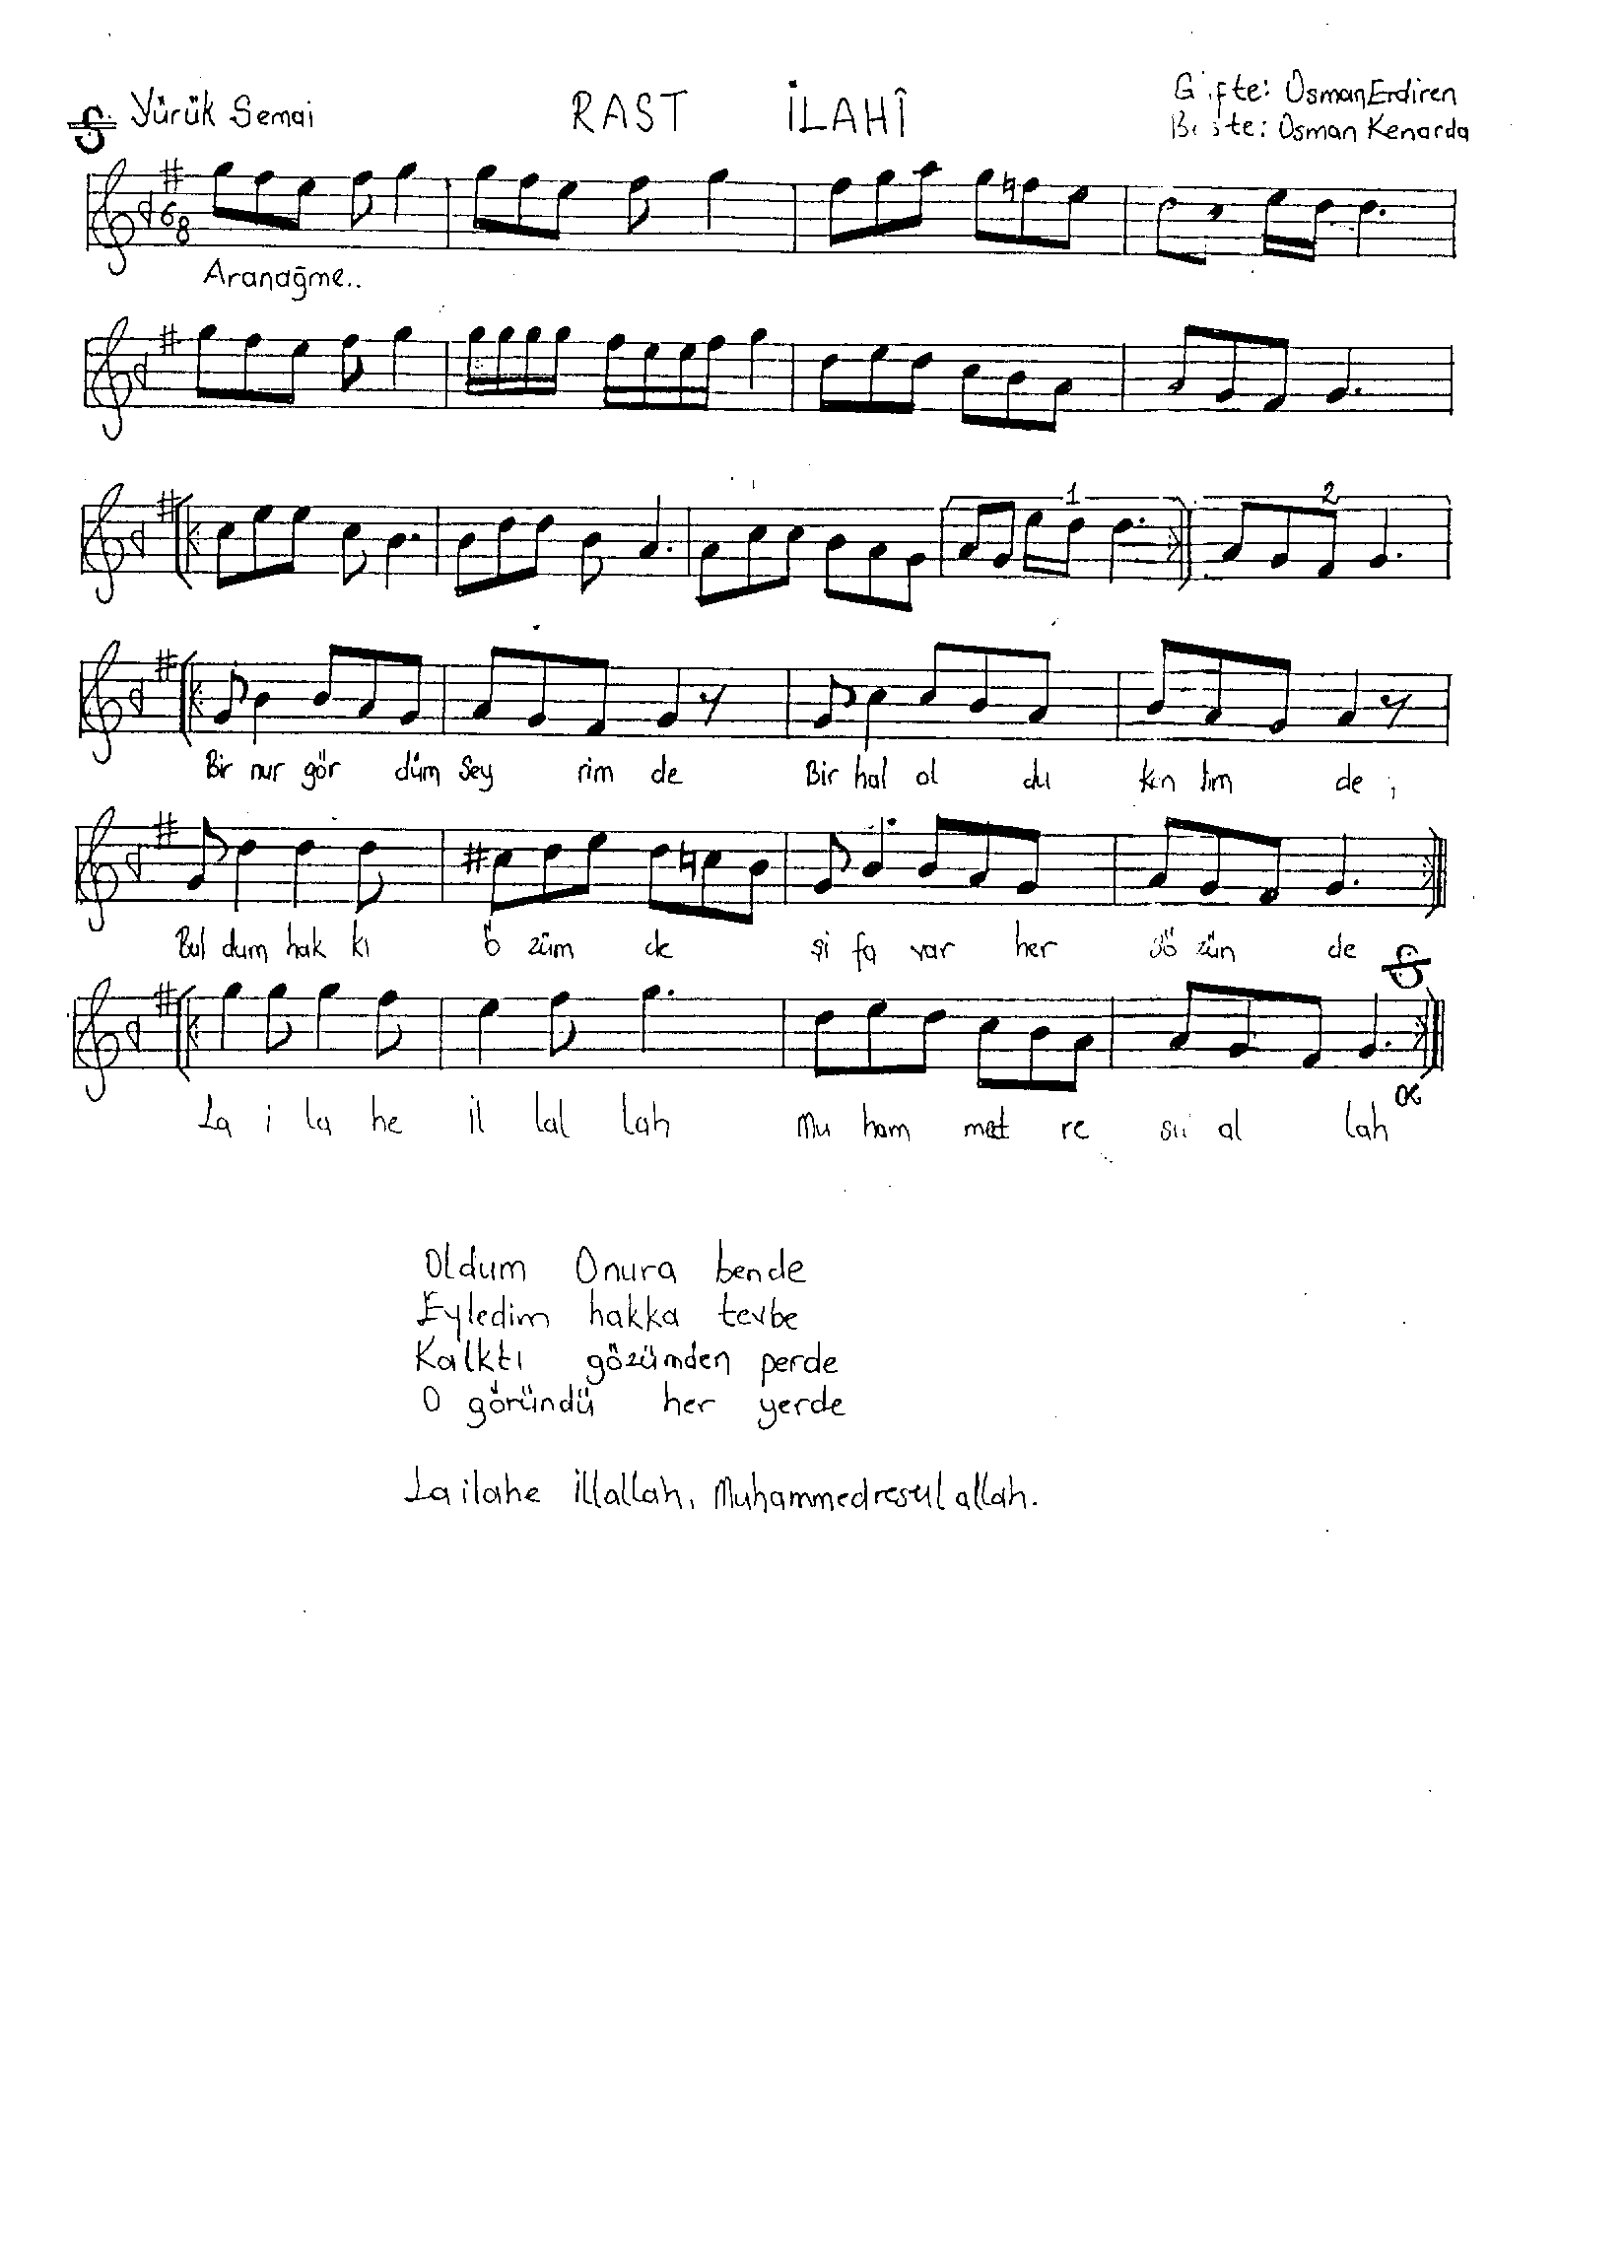 Yürük Semai RAST İLAHÎ Güfte: Osman Erdiren
Beste: Osman Kenarda
6
8
Aranağme..
1 2
Bir nur gör düm Sey rim de Bir hal ol du de ;
Bul dum hak kı ö züm de şi fa var her sö zün de
La i la he il lal lah Mu ham met re sü al lah
Oldum Onura bende
Eyledim hakka tevbe
Kalktı gözümden perde
O göründü her yerde
La ilahe illallah, Muhammedresul allah.